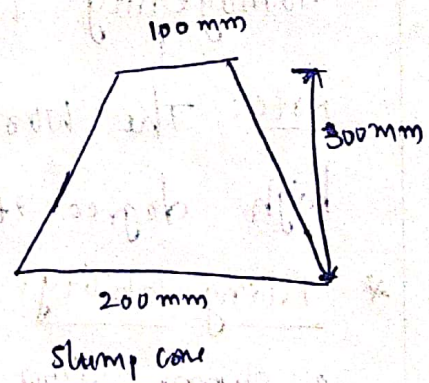 100 mm
300 mm
200 mm
Slump cone